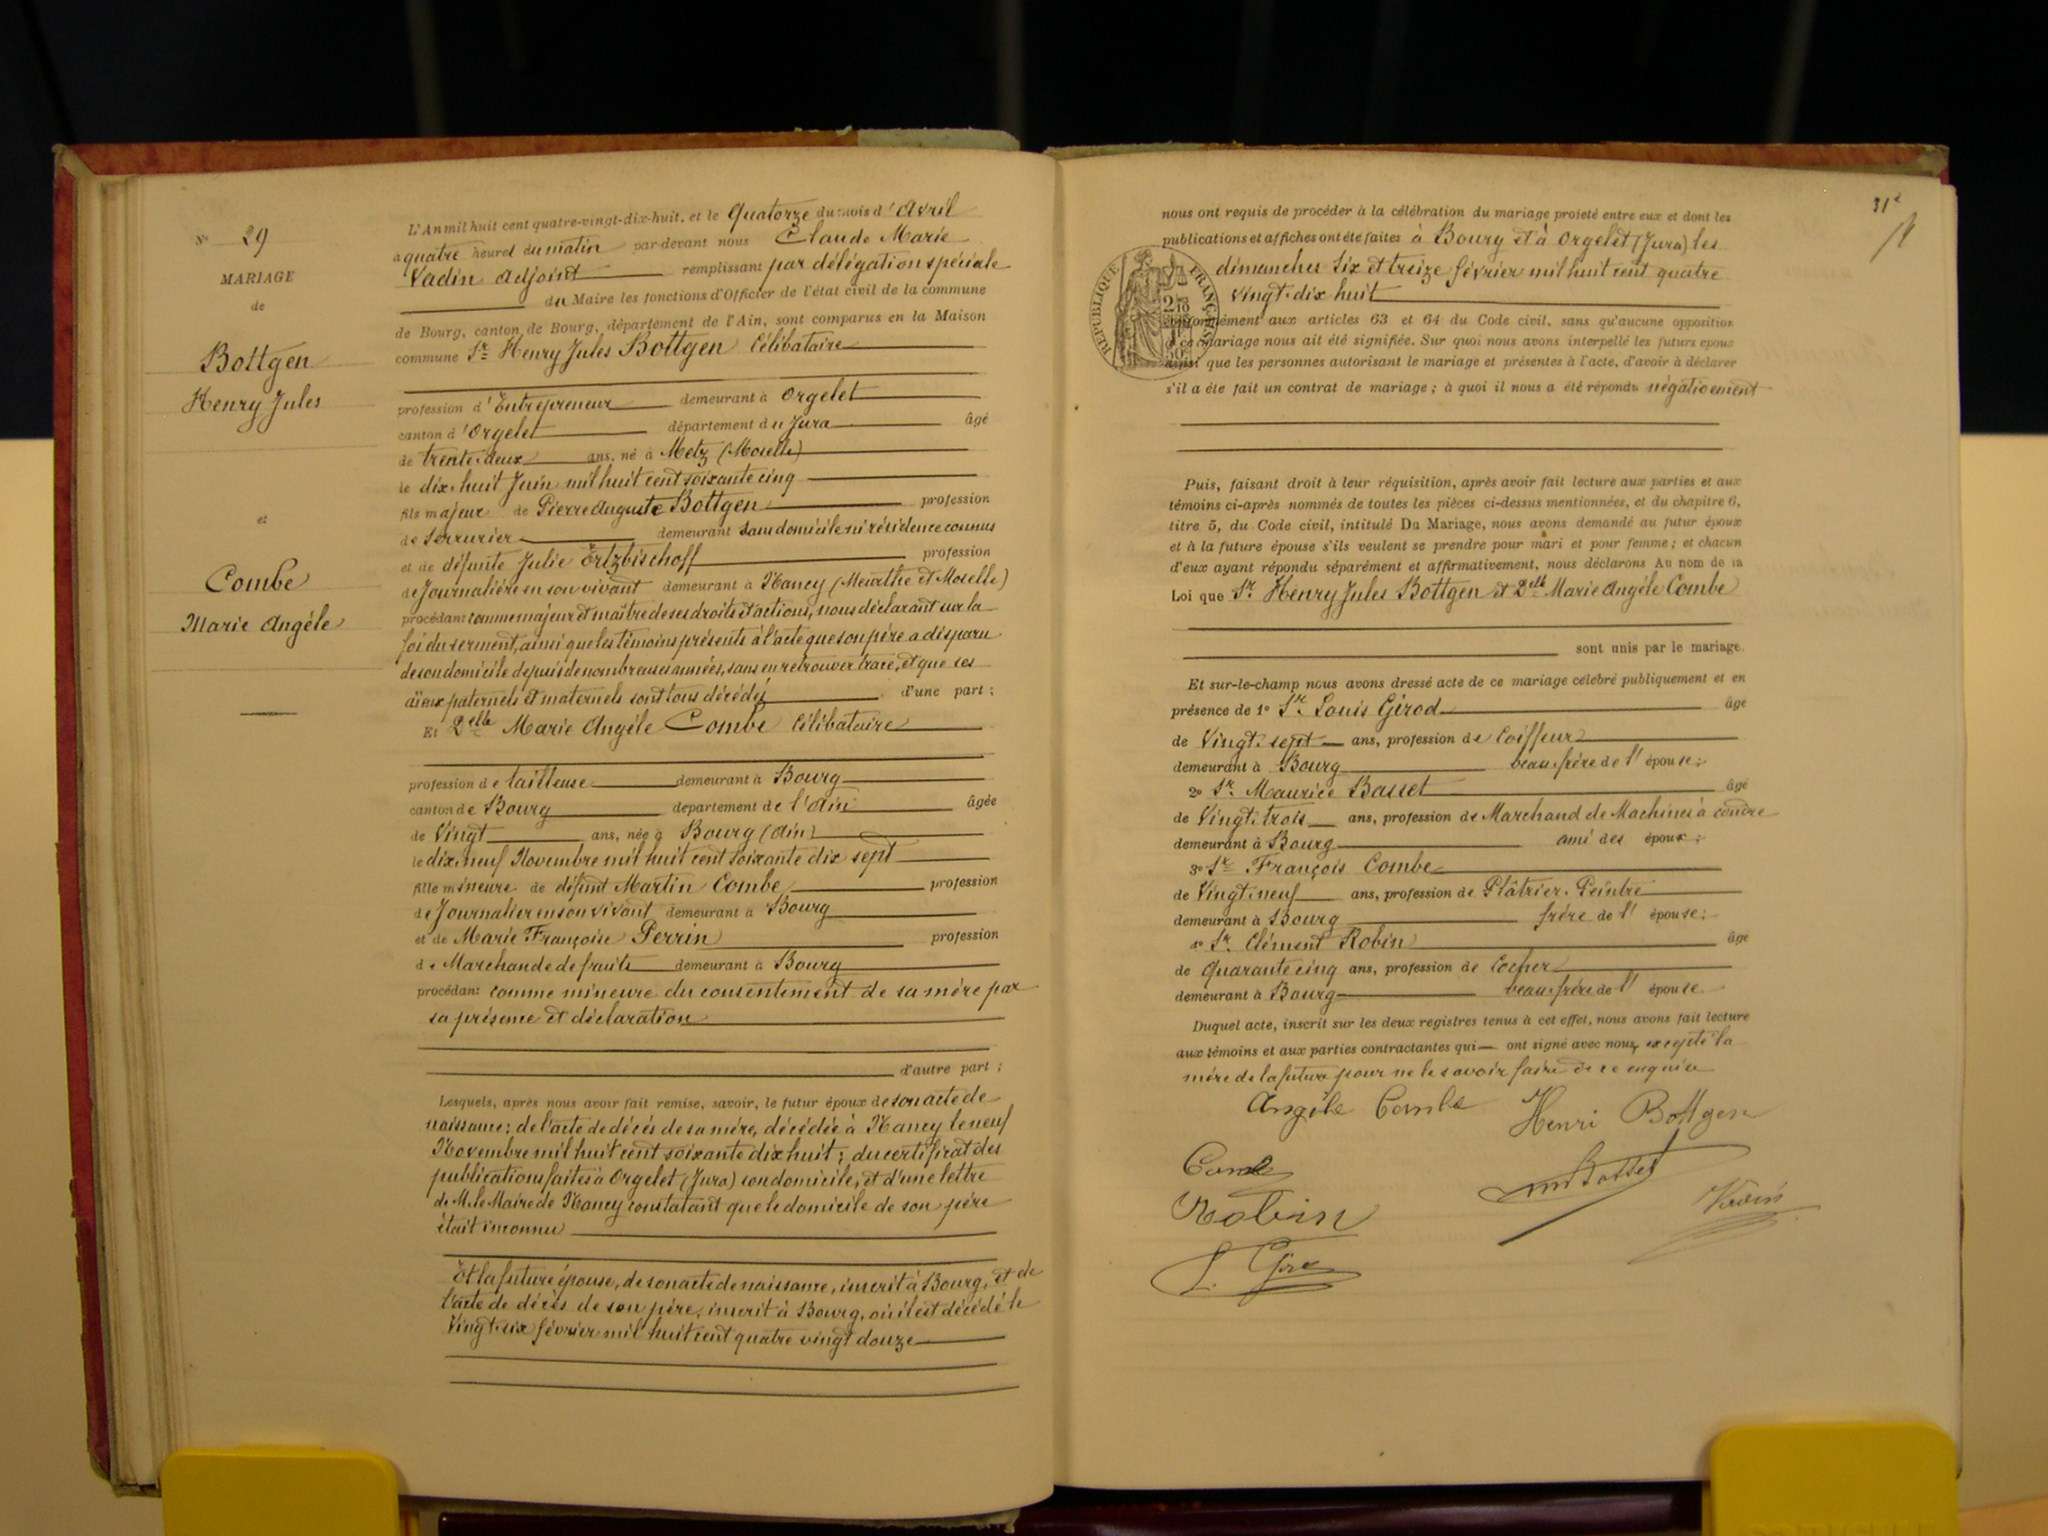 N° 29
MARIAGE
de
Bottgen
Henry Jules
et
Combe
Marie Angèle
L'An mil huit cent quatre-vingt-dix-huit, et le Quatorze du mois d'Avril
à quatre heures du matin par-devant nous Claude Marie
Vadin Adjoint remplissant par délégation spéciale
du Maire les fonctions d'Officier de l'état civil de la commune
de Bourg, canton de Bourg, département de l'Ain, sont comparus en la Maison
commune Sr Henry Jules Bottgen Célibataire
profession d'Entrepreneur demeurant à Orgelet
canton d'Orgelet département du Jura âgé
de trente-deux ans, né à Metz (Moselle)
le dix-huit Juin mil huit cent soixante cinq
fils majeur de Pierre Auguste Bottgen profession
de Serrurier demeurant sans domicile ni résidence connus
et de défunte Julie Ertzbischoff profession
de Journalière en son vivant demeurant à Nancy (Meurthe et Moselle)
procédant comme majeur et maître de ses droits et actions, nous déclarant sur la
foi du serment, ainsi que les témoins présents à l'acte que son père a disparu
de son domicile depuis de nombreuses années, sans en retrouver trace, et que ses
aïeux paternels et maternels sont tous décédés d'une part ;
Et Delle Marie Angèle Combe Célibataire
profession de tailleuse demeurant à Bourg
canton de Bourg département de l'Ain âgée
de Vingt ans, née à Bourg (Ain)
le dix-neuf Novembre mil huit cent soixante dix sept
fille mineure de défunt Martin Combe profession
de Journalier en son vivant demeurant à Bourg
et de Marie Françoise Perrin profession
de Marchande de fruits demeurant à Bourg
procédant comme mineure du consentement de sa mère par
sa présence et déclaration
d'autre part ;
Lesquels, après nous avoir fait remise, savoir, le futur époux de son acte de
naissance ; de l'acte de décès de sa mère, décédée à Nancy le neuf
Novembre mil huit cent soixante dix huit ; du certificat des
publications faites à Orgelet (Jura) son domicile, et d'une lettre
de M. le Maire de Nancy constatant que le domicile de son père
était inconnu
Et la future épouse, de son acte de naissance, inscrit à Bourg, et de
l'acte de décès de son père, inscrit à Bourg, où il est décédé le
Vingt-six février mil huit cent quatre vingt douze
31e
nous ont requis de procéder à la célébration du mariage projeté entre eux et dont les
publications et affiches ont été faites à Bourg et à Orgelet (Jura) les
dimanches six et treize février mil huit cent quatre
vingt-dix huit
RÉPUBLIQUE FRANÇAISE
conformément aux articles 63 et 64 du Code civil, sans qu'aucune opposition
à ce mariage nous ait été signifiée. Sur quoi nous avons interpellé les futurs époux
ainsi que les personnes autorisant le mariage et présentes à l'acte, d'avoir à déclarer
s'il a été fait un contrat de mariage ; à quoi il nous a été répondu négativement
Puis, faisant droit à leur réquisition, après avoir fait lecture aux parties et aux
témoins ci-après nommés de toutes les pièces ci-dessus mentionnées, et du chapitre 6,
titre 5, du Code civil, intitulé Du Mariage, nous avons demandé au futur époux
et à la future épouse s'ils veulent se prendre pour mari et pour femme ; et chacun
d'eux ayant répondu séparément et affirmativement, nous déclarons Au nom de la
Loi que Sr Henry Jules Bottgen et Delle Marie Angèle Combe
sont unis par le mariage.
Et sur-le-champ nous avons dressé acte de ce mariage célébré publiquement et en
présence de 1° Sr Louis Gérod âgé
de Vingt-sept ans, profession de Coiffeur
demeurant à Bourg beau-frère de l'épouse ;
2° Sr Maurice Basset âgé
de Vingt-trois ans, profession de Marchand de Machines à coudre
demeurant à Bourg ami des époux ;
3° Sr François Combe
de Vingt-neuf ans, profession de Plâtrier-Peintre
demeurant à Bourg frère de l'épouse ;
4° Sr Clément Robin âgé
de Quarante cinq ans, profession de Cocher
demeurant à Bourg beau-frère de l'épouse
Duquel acte, inscrit sur les deux registres tenus à cet effet, nous avons fait lecture
aux témoins et aux parties contractantes qui ont signé avec nous, excepté la
mère de la future pour ne le savoir faire de ce enquise
Angèle Combe Henri Bottgen
Combe
M Basset
Robin
Vadin